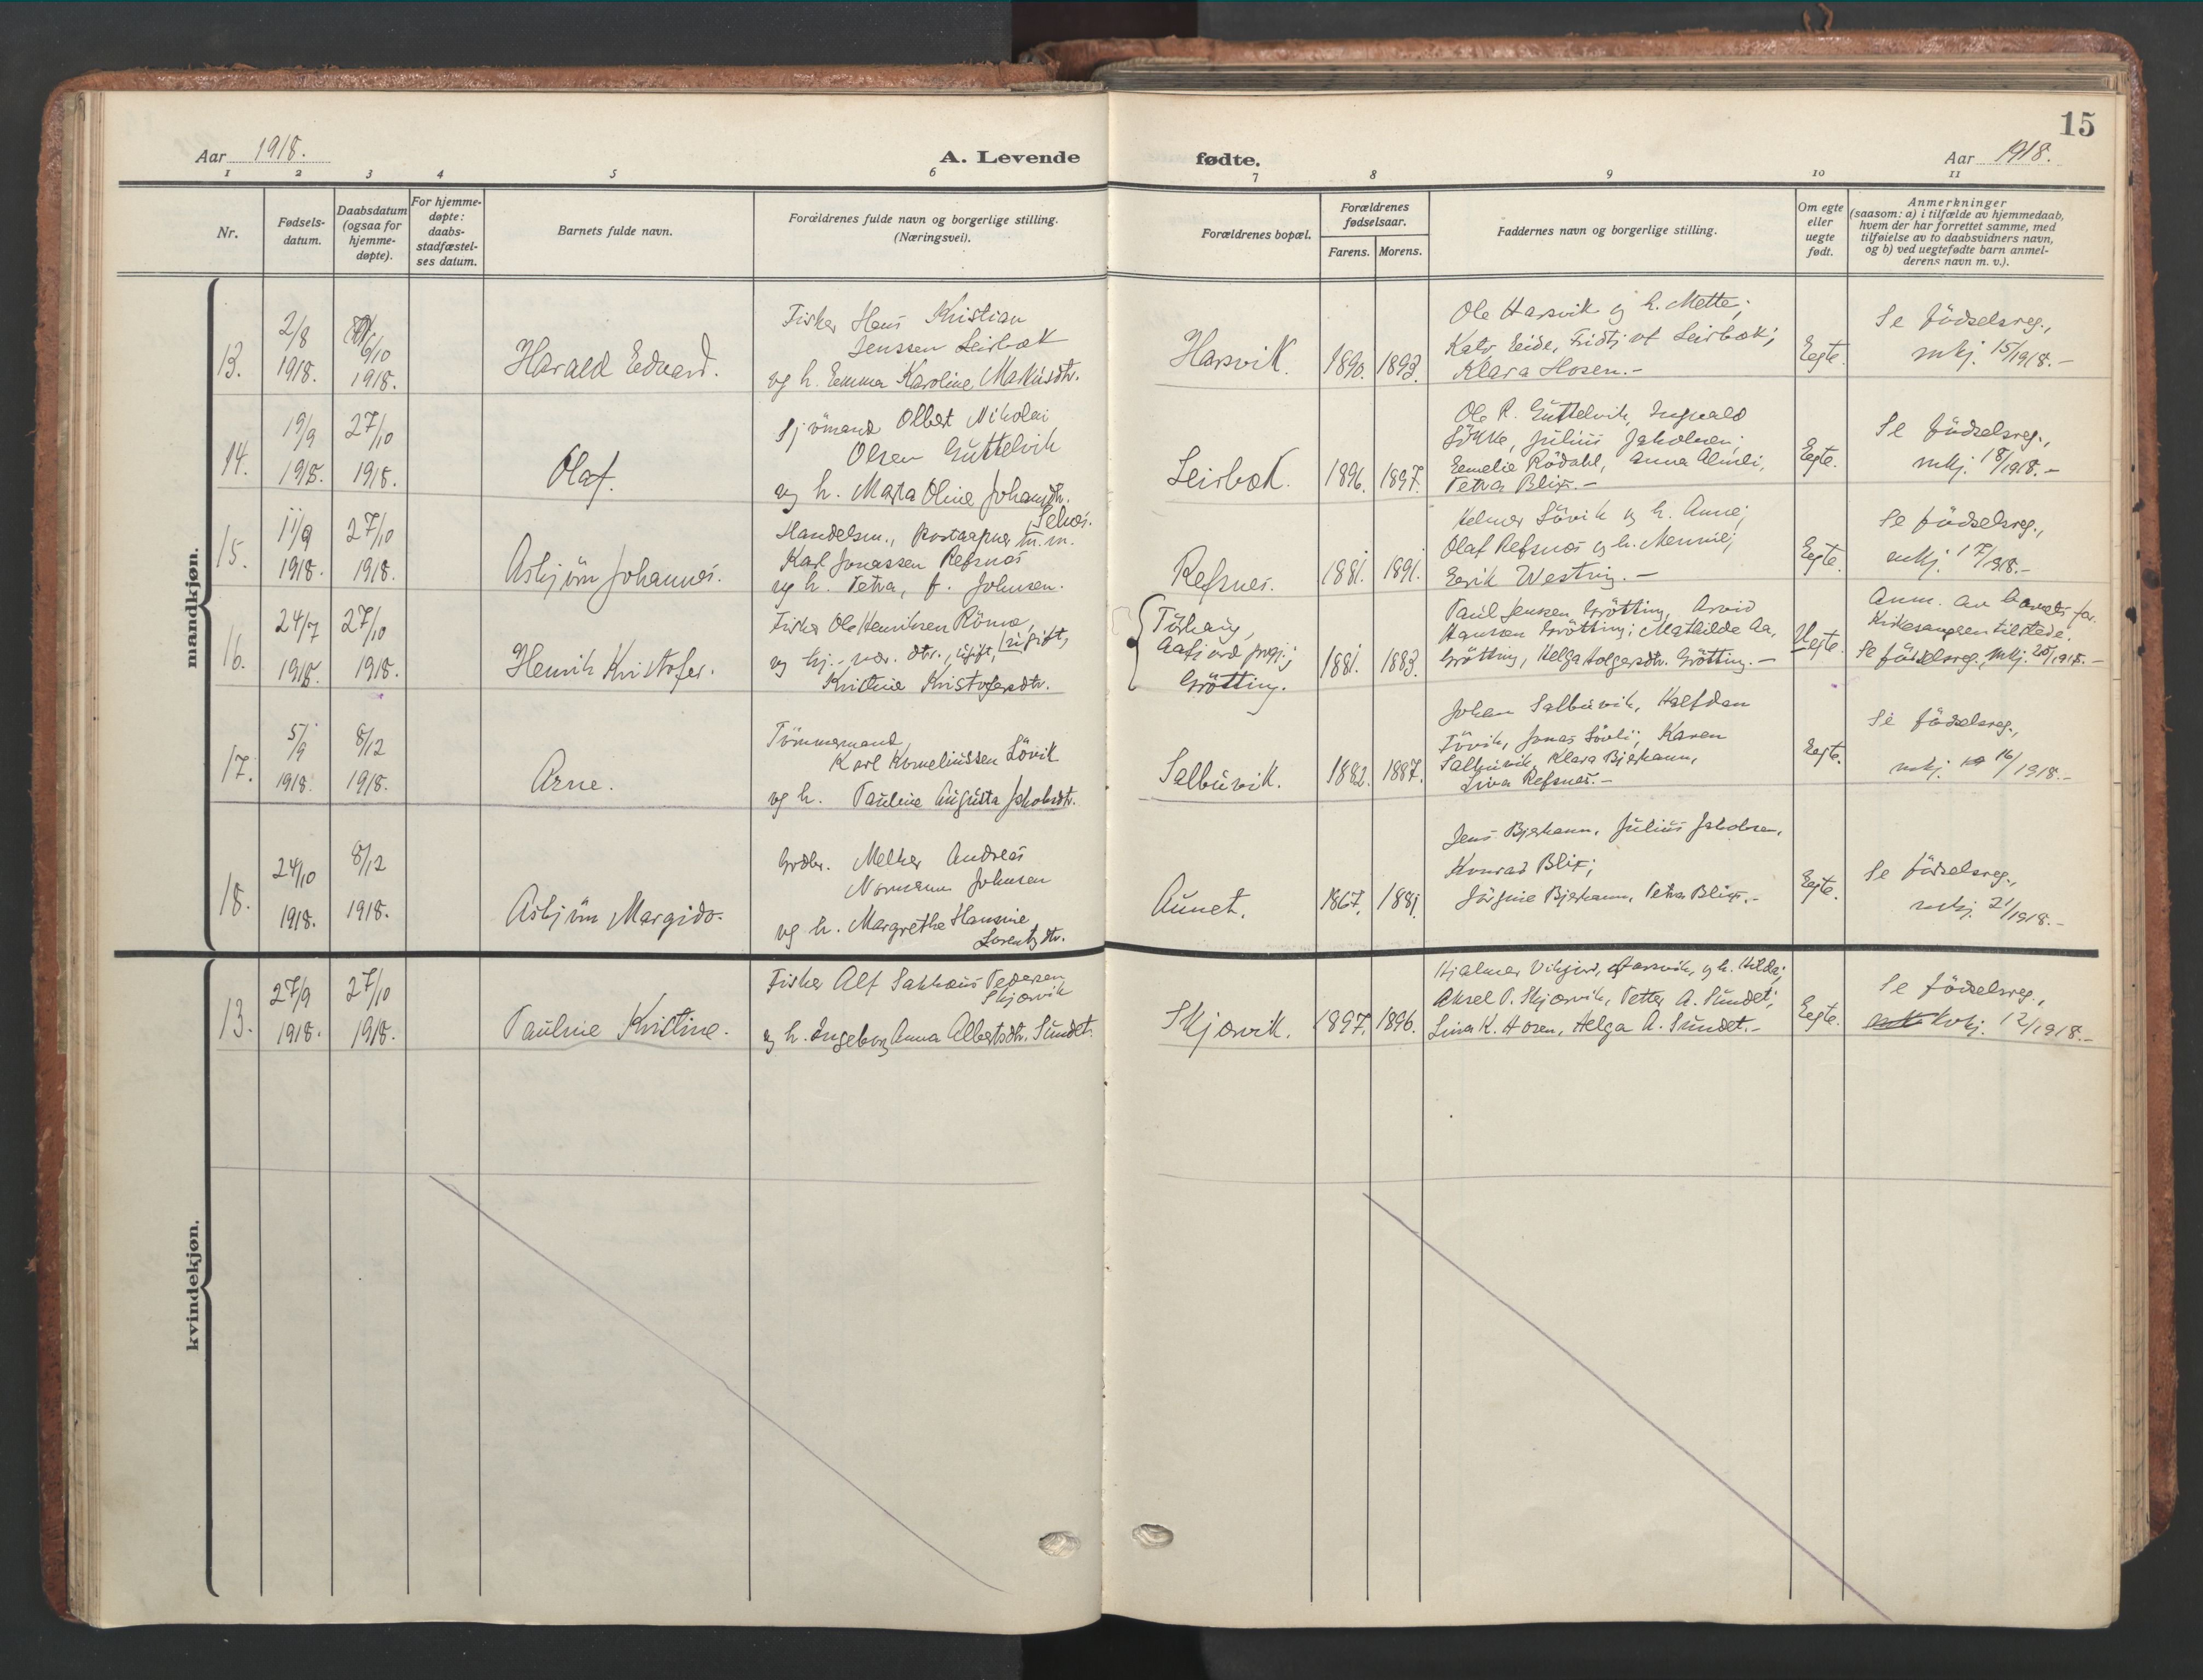 15
Aar 1918.
A. Levende
fødte.
Aar 1918.
1 2 3 4 5 6 7 8 9 10 11
Nr.
Fødsels-
datum.
Daabsdatum
(ogsaa for
hjemme-
døpte).
For hjemme-
døpte:
daabs-
stadfæstel-
ses datum.
Barnets fulde navn.
Forældrenes fulde navn og borgerlige stilling.
(Næringsvei).
Forældrenes bopæl.
Forældrenes
fødselsaar.
Farens.
Morens.
Faddernes navn og borgerlige stilling.
Om egte
eller
uegte
født.
Anmerkninger
(saasom: a) i tilfælde av hjemmedaab,
hvem der har forrettet samme, med
tilføielse av to daabsvidners navn,
og b) ved uegtefødte barn anmel-
derens navn m. v.).
mandkjøn.
13.
2/8
1918.
6/10
1918.
Harald Edvard.
Fisker Hans Kristian
Jenssen Leirbæk
og h. Emma Karoline Markusdtr.
Harsvik.
1890.
1893.
Ole Harsvik og h. Mette;
Kato Eide, Fridtjof Leirbæk;
Klara Hosen.-
Egte.
Se födselsreg.,
mkj. 15/1918.-
14.
19/9
1918.
27/10
1918.
Olaf.
Sjömand Olbert Nikolai
Olsen Guttelvik
og h. Marta Oline Johansdtr.
Leirbæk.
1896.
1897.
Ole R. Guttelvik, Ingvald
Sökke, Julius Jakobsen;
Emelie Rödahl, Anna Almli,
Petra Blix.-
Egte.
Se födselsreg.,
mkj. 18/1918.-
15.
11/9
1918.
27/10
1918.
Asbjörn Johannes.
Handelsm., postaapner m.m.
Karl Jonassen Refsnes
og h. Petra, f. Johnsen.
Refsnes.
1881.
1891.
Helmer Sörvik og h. Anne;
Olaf Refsnes og h. Mennie;
Erik Westvig.-
Egte.
Se födselsreg.,
mkj. 17/1918.-
16.
24/7
1918.
27/10
1918.
Henrik Kristofer.
Fisker Ole Henriksen Römo, ugift,
og hj.-vær. dtr., ugift,
Kristine Kristofersdtr.
Törhaug,
Aafjord prgj.;
Grötting.
1881.
1883.
Paul Jensen Grötting, Arvid
Hansen Grötting; Mathilde Aa,
Grötting, Helga Holgersdtr. Grötting.-
Uegte.
Anm. av barnets far.
Kirkesangeren tilstede.
Se födselsreg., mkj. 20/1918.-
17.
5/9
1918.
8/12
1918.
Arne.
Tömmermand
Karl Korneliussen Lövik
og h. Pauline Augusta Jakobsdtr.
Salbuvik.
1882.
1887.
Johan Salbuvik, Halfdan
Lövik, Jonas Sörli; Karen
Salbuvik, Klara Bjerkann,
Lina Refsnes.-
Egte.
Se födselsreg.,
mkj. 16/1918.-
18.
24/10
1918.
8/12
1918.
Asbjörn Margido.
Grdbr. Melker Andreas
Normann Johnsen
og h. Margrethe Hansine
Lorentzdtr.
Aunet.
1867.
1881.
Jens Bjerkann, Julius Jakobsen,
Konrad Blix;
Jörgine Bjerkann, Petra Blix.-
Egte.
Se födselsreg.,
mkj. 21/1918.-
kvindekjøn.
13.
27/9
1918.
27/10
1918.
Pauline Kristine.
Fisker Alf Sakkæus Pedersen
Skjærvik
og h. Ingeborg Anna Albertsdtr. Sundet.
Skjærvik.
1897.
1896.
Hjalmer Vikjord, Harsvik, og h. Hilda;
Aksel P. Skjærvik, Petter A. Sundet;
Lina K. Hosen, Helga A. Sundet.-
Egte.
Se födselsreg.,
kvkj. 12/1918.-